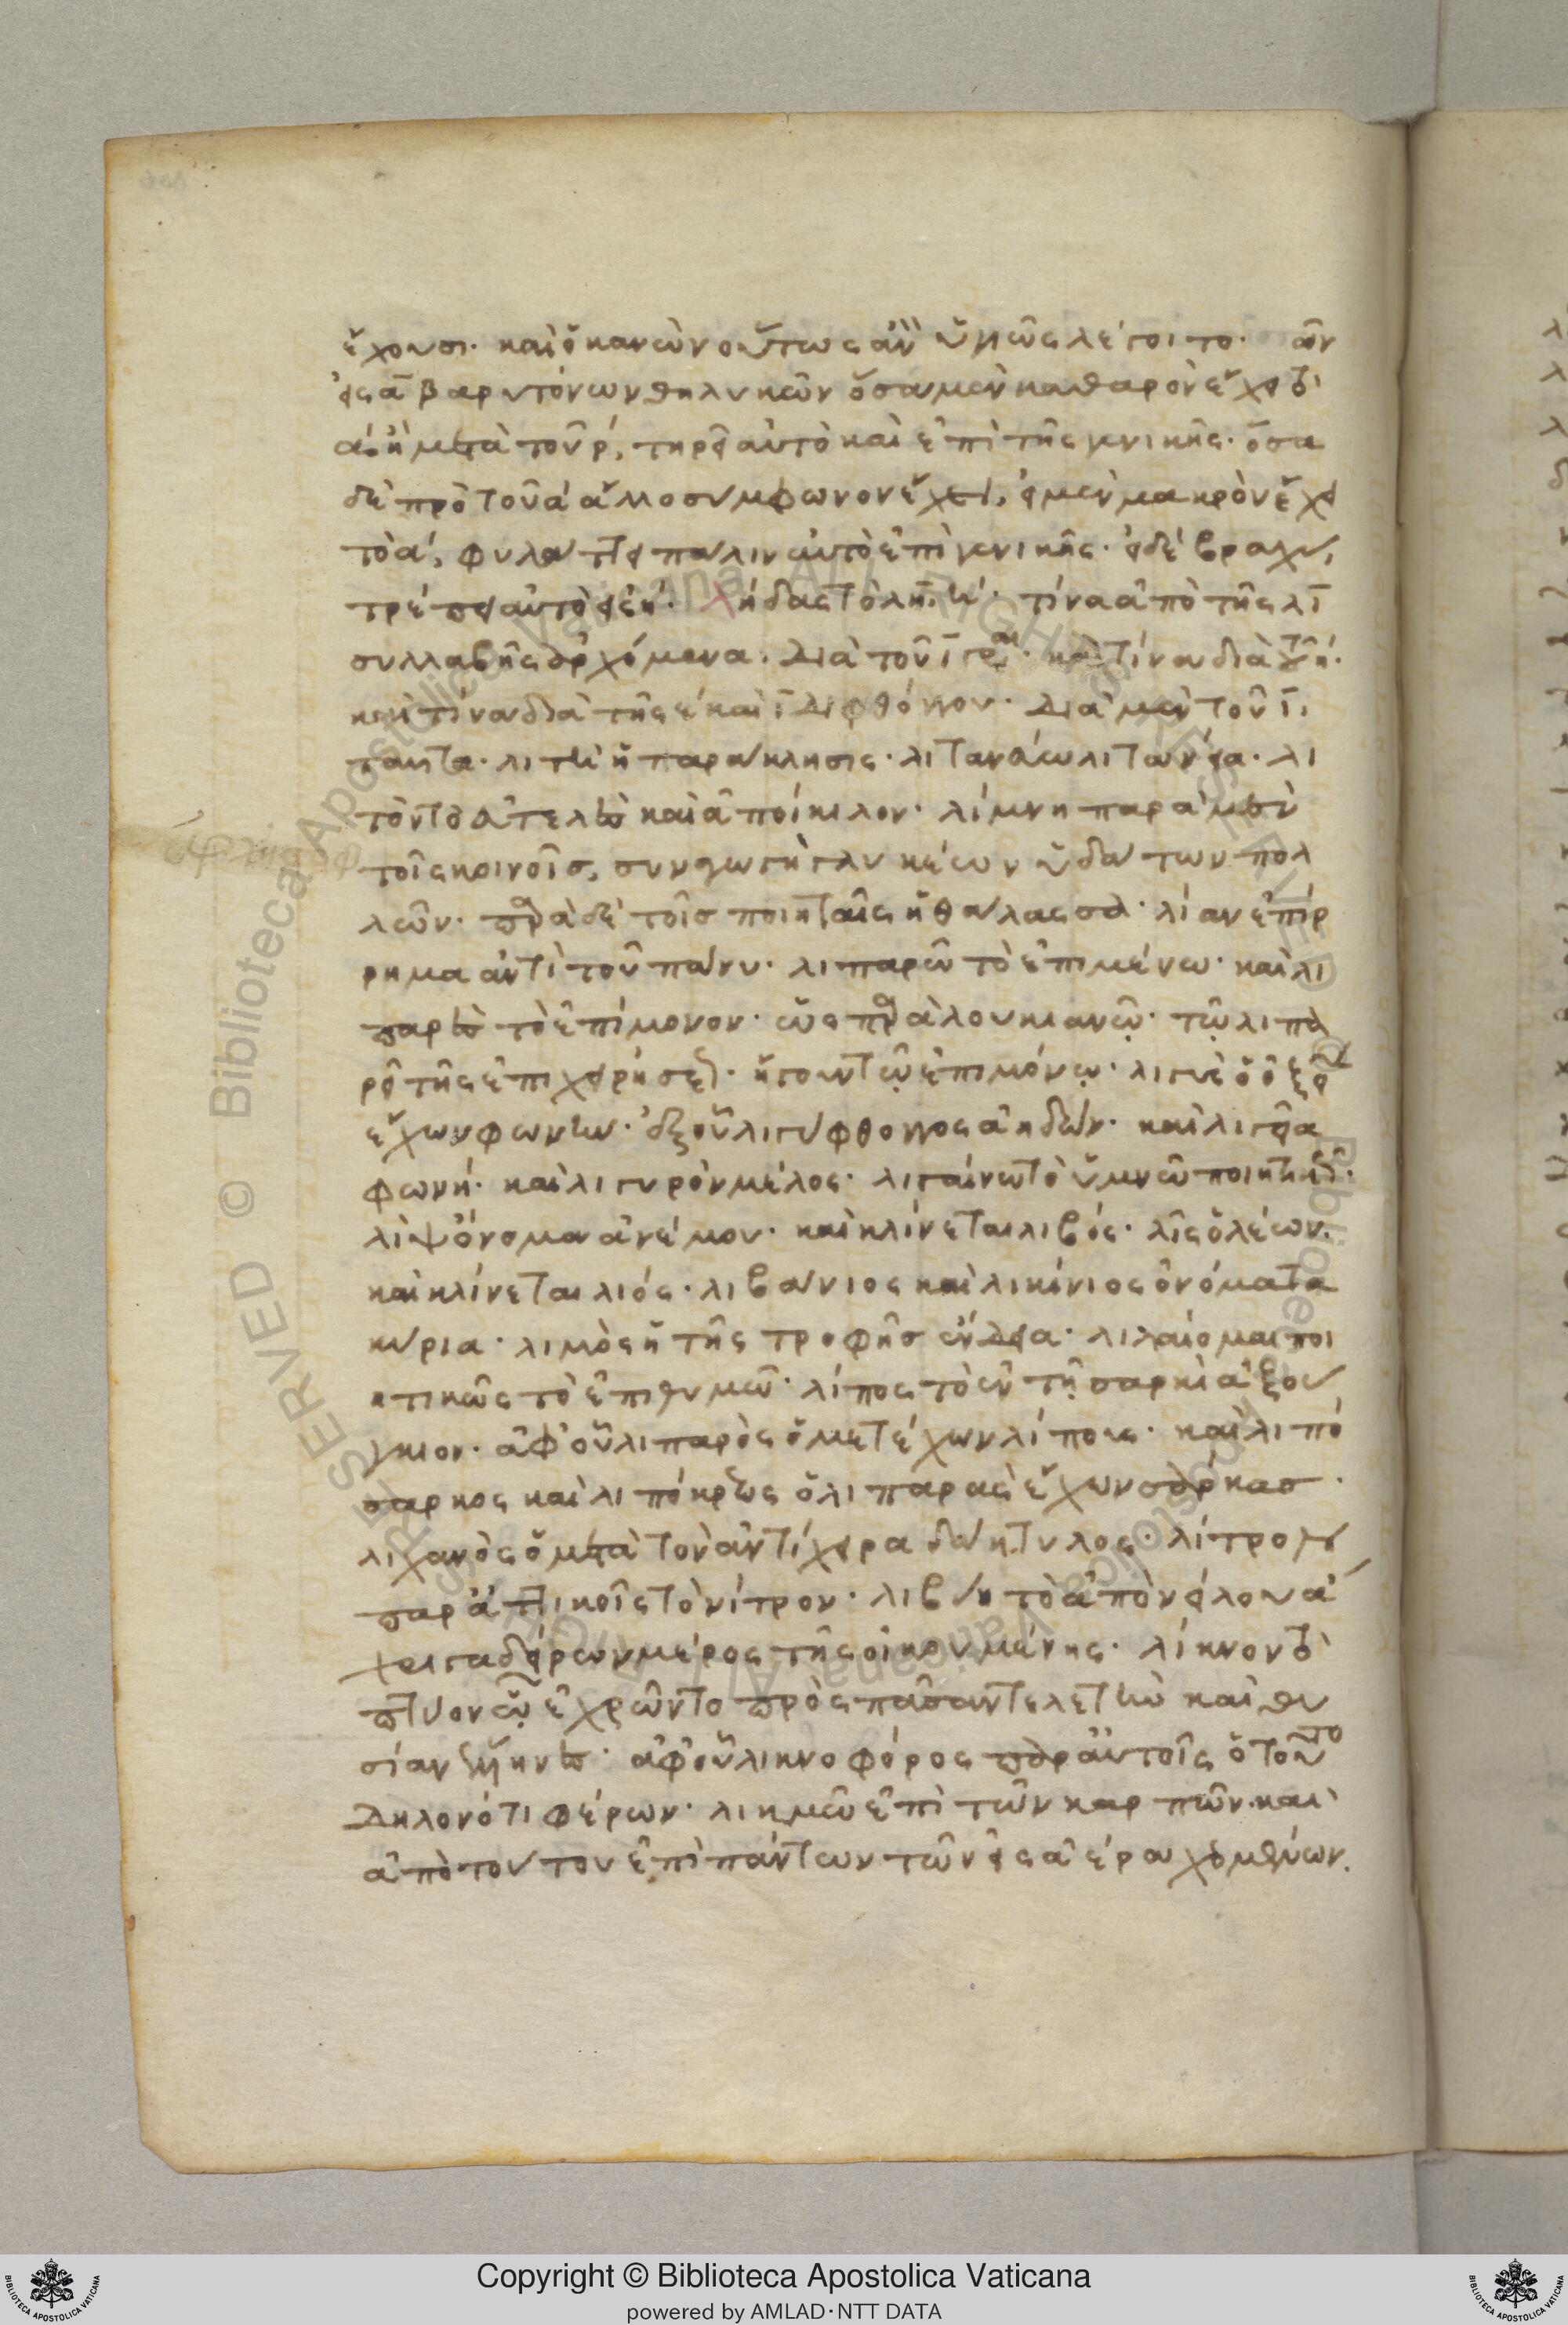 ἔχουσι· καὶ ὁ κανὼν οὕτως ἂν ὑγιῶς λέγοιτο· τῶν
εἰς ᾱ βαρυτόνων θηλυκῶν ὅσα μὲν καθαρὸν ἔχει τὸ
ά, ἢ μετὰ τοῦ ρ, τηρεῖ αὐτὸ καὶ ἐπὶ τῆς γενικῆς· ὅσα
δὲ πρὸ τοῦ ά ἄλλο σύμφωνον ἔχει, εἰ μὲν μακρὸν ἔχει
τὸ ά, φυλάττει πάλιν αὐτὸ ἐπὶ γενικῆς· εἰ δὲ βραχύ,
τρέπει αὐτὸ εἰς ή· λήδας τὸ λῃ· τίνα ἀπὸ τῆς λῑ
συλλαβῆς ἀρχόμενα, διὰ τοῦ ῑ γράφεται· καὶ τίνα διὰ τοῦ ή·
καὶ τίνα διὰ τῆς έ καὶ ῑ διφθόγγου· διὰ μὲν τοῦ ῑ,
ταῦτα· λιτὴ ἡ παράκλησις· λιτανεύω λιτανεία· λι
τὸν τὸ ἀτελὲς καὶ ἀποίκιλον· λίμνη παρὰ μὲν
τοῖς κοινοῖς, συναγωγὴ γλυκέων ὑδάτων πολ
λῶν· παρὰ δὲ τοῖς ποιηταῖς ἡ θάλασσα· λίαν ἐπίρ
ρημα ἀντὶ τοῦ πάνυ· λιπαρῶ τὸ ἐπιμένω· καὶ λι
παρὲς τὸ ἐπίμονον· ὡς παρὰ λουκιανῷ· τῷ λιπα
ρεῖ τῆς ἐπιχειρήσεως· ἤγουν τῷ ἐπιμόνῳ· λιγὺς ὁ ὀξεῖαν
ἔχων φωνὴν· ἐξ οὗ λιγύφθογγος ἀηδών· καὶ λιγεῖα
φωνή· καὶ λιγυρὸν μέλος· λιγαίνω τὸ ὑμνῶ ποιητικῶς·
λὶψ ὄνομα ἀνέμου· καὶ κλίνεται λιβός· λῖς ὁ λέων.
καὶ κλίνεται λιός· λιβάνιος καὶ λικίνιος ὀνόματα
κύρια· λιμὸς ἡ τῆς τροφῆς ἔνδεια· λιλαίομαι ποι
ητικῶς τὸ ἐπιθυμῶ· λίπος τὸ ἐν τῇ σαρκὶ ἀξού
γκιον· ἀφ' οὗ λιπαρὸς ὁ μετέχων λίπους· καὶ λιπό
σαρκος καὶ λιπόκρεως ὁ λιπαρὰς ἔχων σάρκας·
λιχανὸς ὁ μετὰ τὸν ἀντίχειρα δάκτυλος· λίτρον
παρ' ἀττικοῖς τὸ νίτρον· λιβύη τὸ ἀπὸ νείλου ἄ
χρι γαδείρων μέρος τῆς οἰκουμένης· λίκνον τὸ
πτύον ᾧ ἐχρῶντο πρὸς πᾶσαν τελετὴν καὶ θυ
σίαν ἕλληνες· ἀφ' οὗ λικνοφόρος παρ' αὐτοῖς ὁ τοῦτο
δηλονότι φέρων· λικμῶ ἐπὶ τῶν καρπῶν· καὶ
ἀπὸ τούτου ἐπὶ πάντων τῶν εἰς ἀέρα χεομένων.